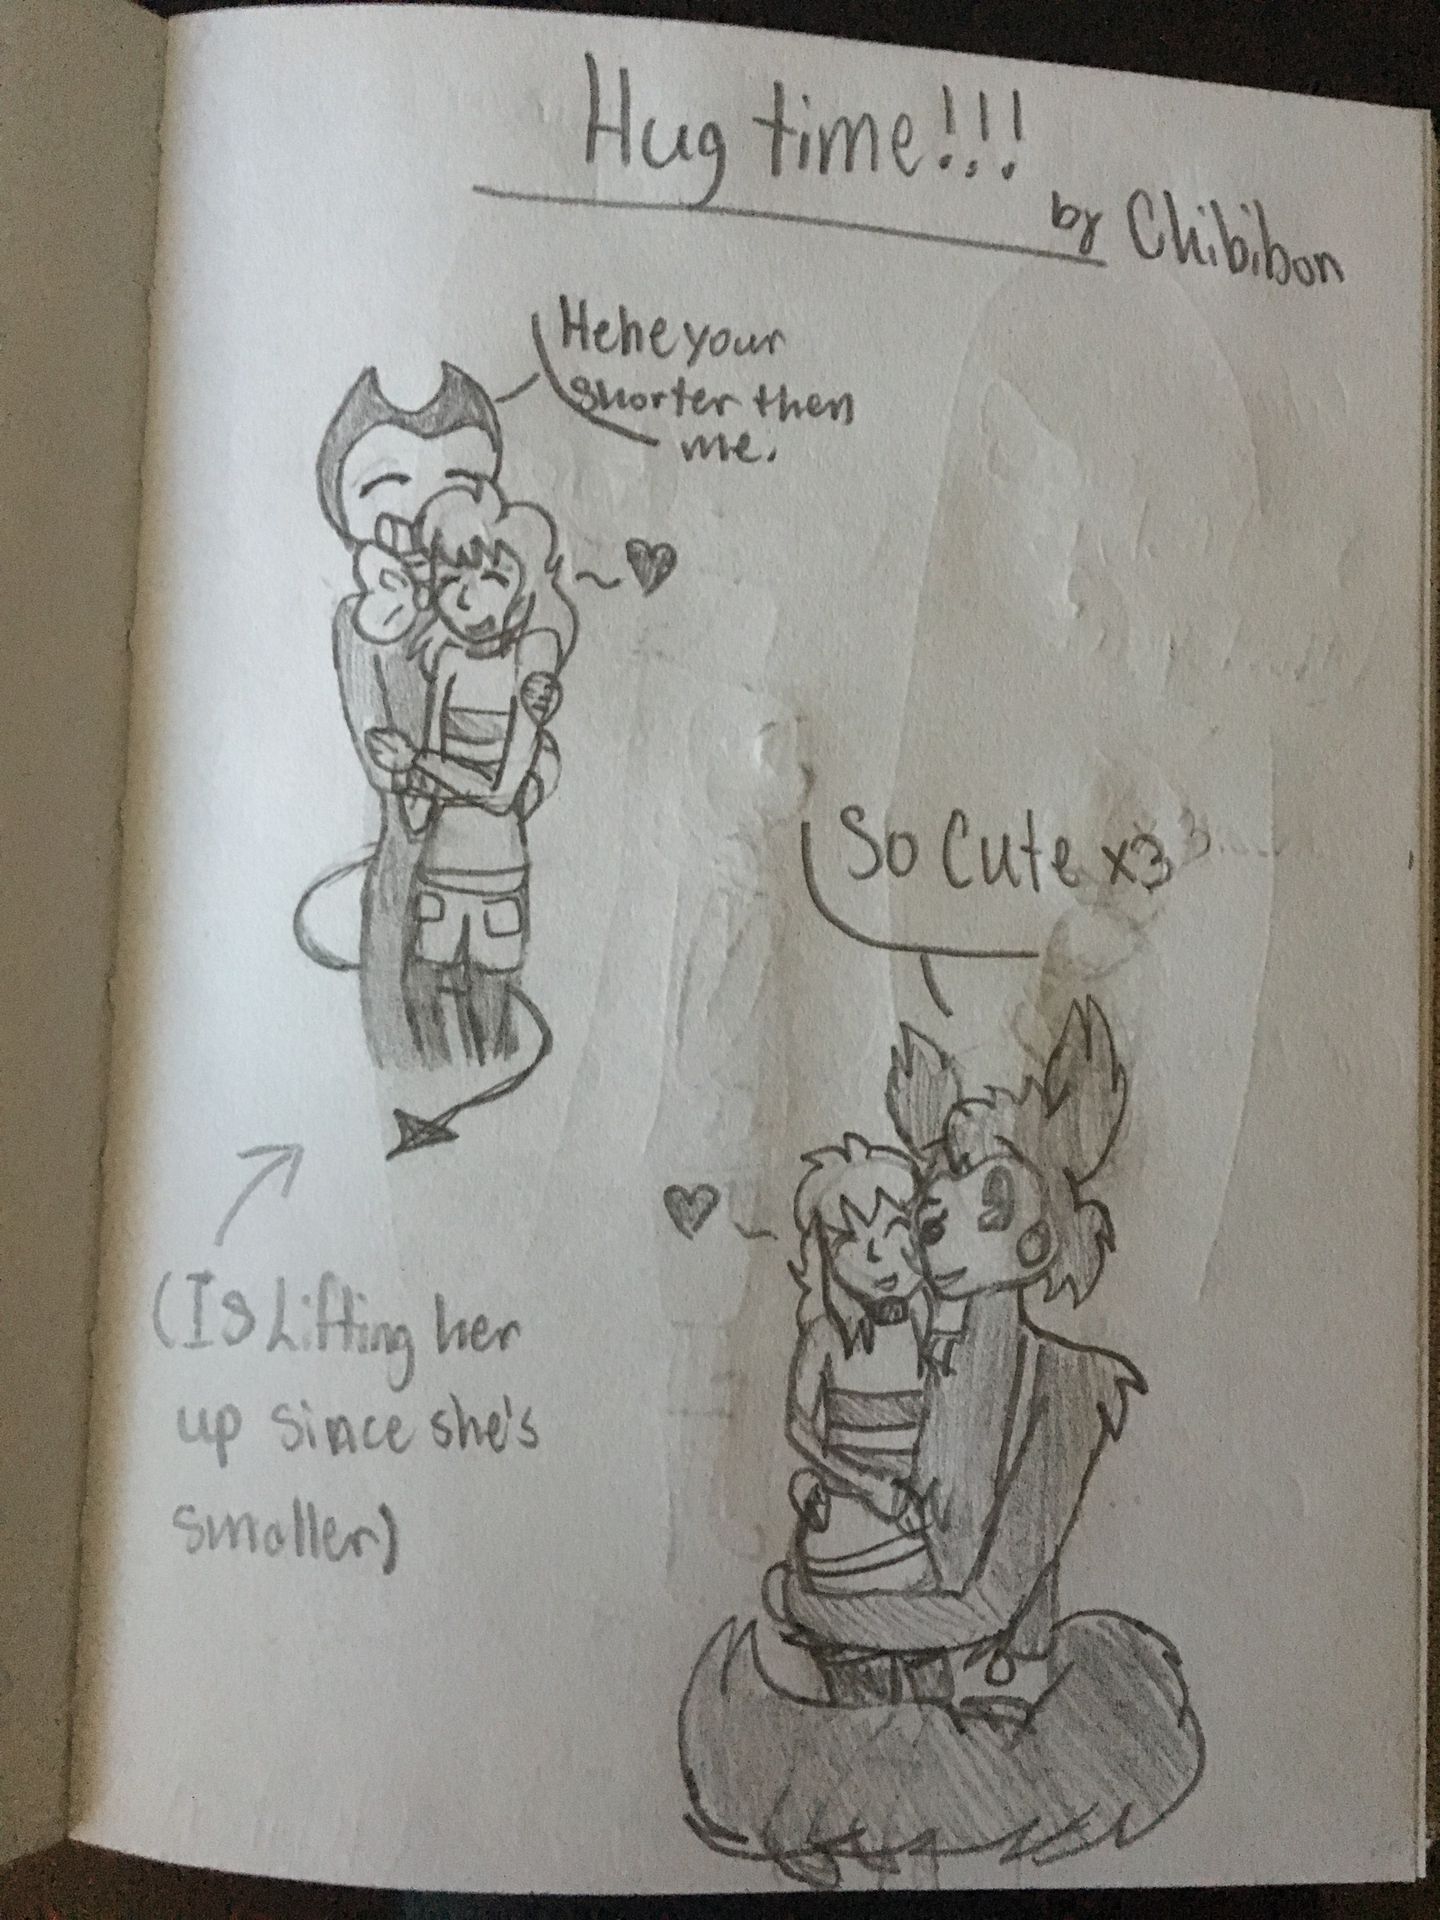 Hug time!!!
by Chibibon
Hehe your
shorter then
me.
So cute x3
(Is Lifting her
up since she's
smaller)